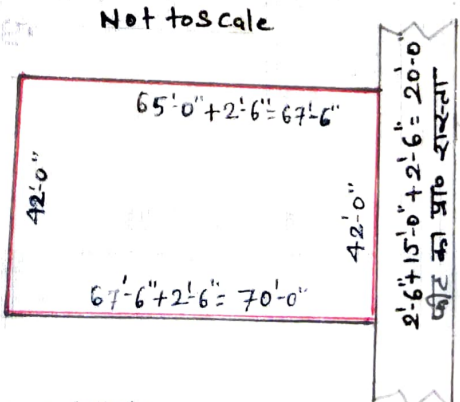 Not to scale
65'-0"+2'-6"=67'-6"
42'-0"
42'-0"
67'-6"+2'-6"= 70'-0"
2'-6"+15'-0"+2'-6"= 20'-0"
फीट का प्रा० रास्ता